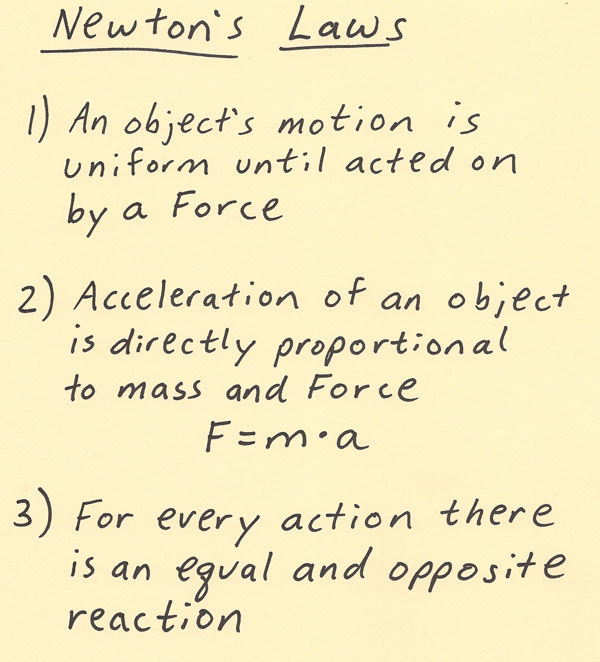 Newton's Laws
1) An object's motion is
uniform until acted on
by a Force
2) Acceleration of an object
is directly proportional
to mass and Force
F = m • a
3) For every action there
is an equal and opposite
reaction